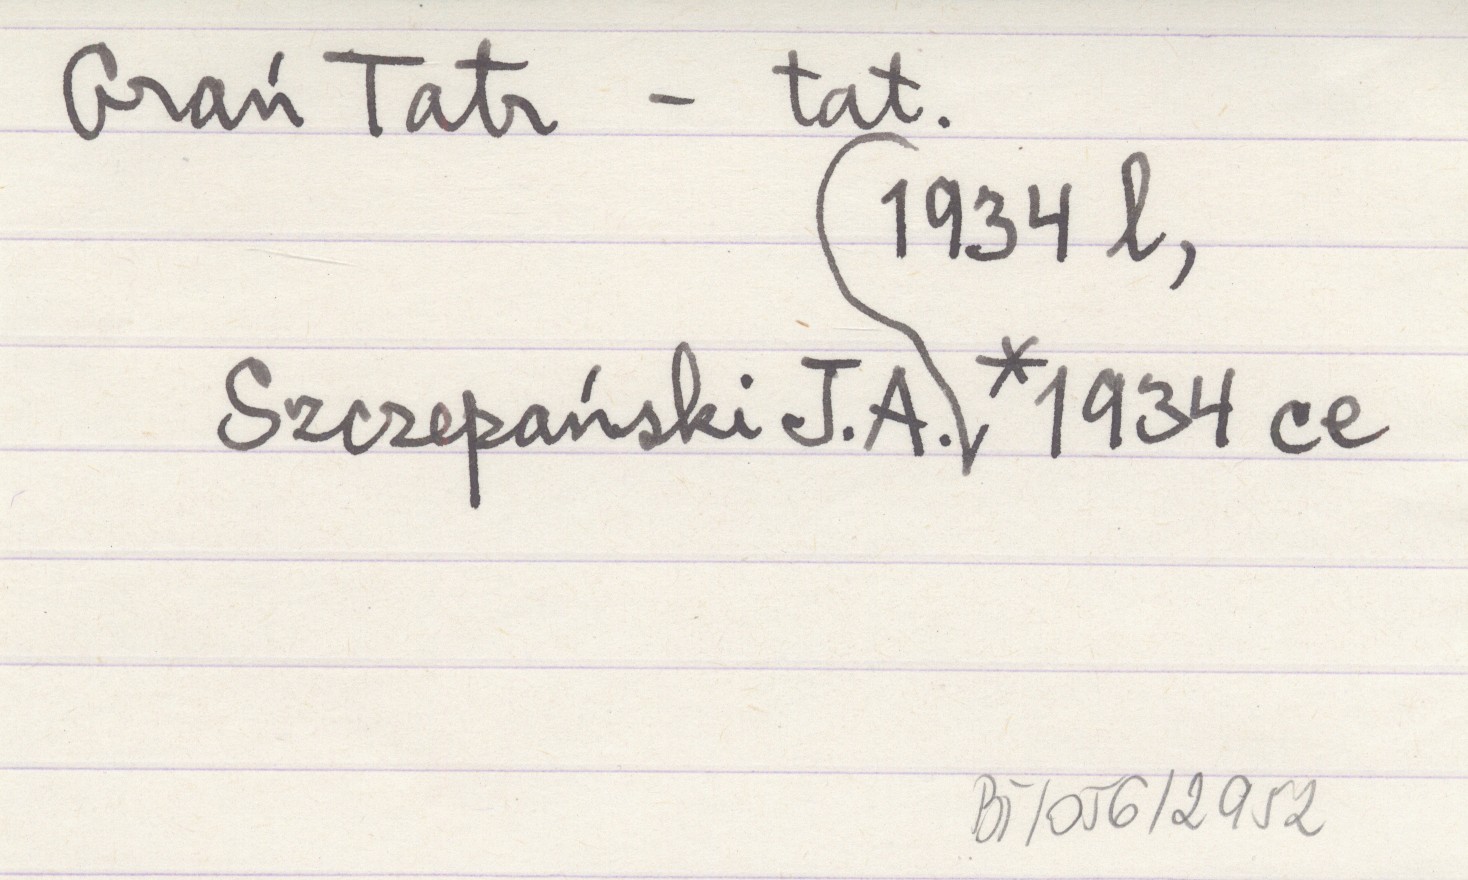 Grań Tatr - tat.
1934 l,
Szczepański J.A. *1934 ce
BT/056/2952